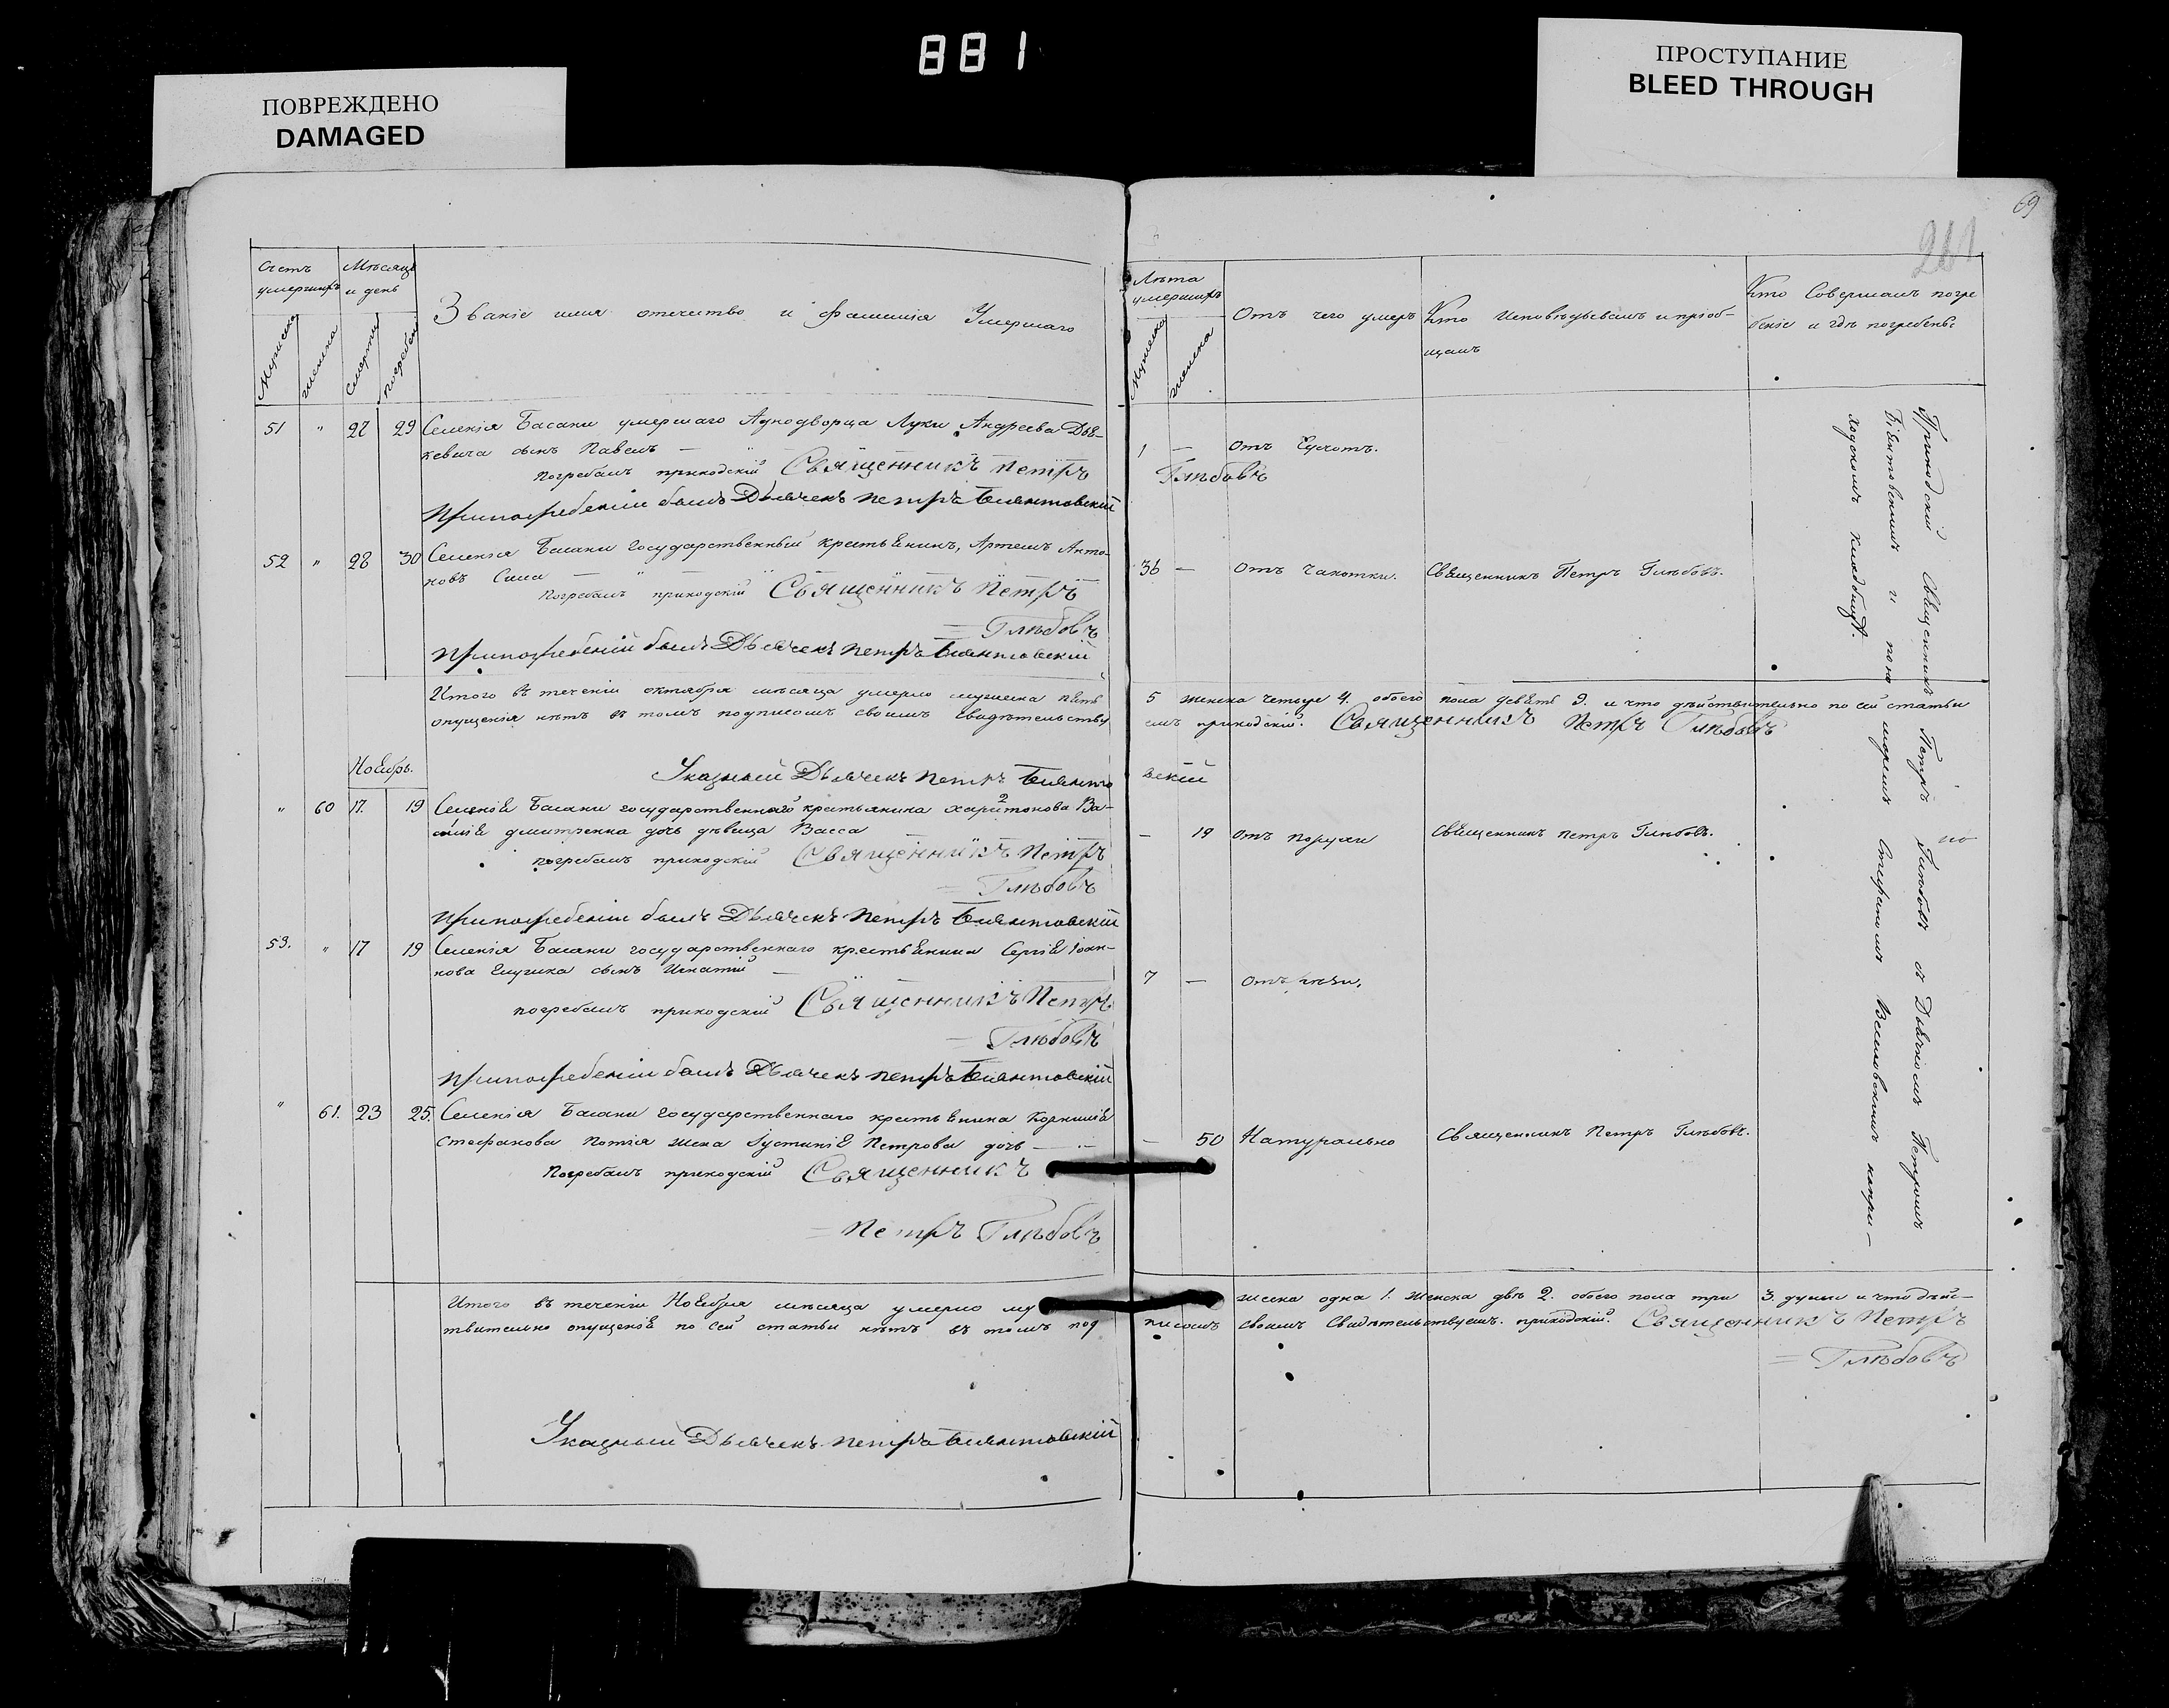 881
ПОВРЕЖДЕНО
DAMAGED
ПРОСТУПАНИЕ
BLEED THROUGH
69
261
Счетъ умершихъ
Мѣсяцъ и день
Званіе имя отечество и фамилія Умершаго
Мужеска
женска
Смерти
погребен
Лѣта умершихъ
Мужеска
женска
Отъ чего умеръ
Кто Исповѣдывалъ и пріоб-
щалъ
Кто Совершалъ погре
беніе и гдѣ погребены
51 " 27 29 Селенія Басани умершаго Аднодворца Луки Андреева
кевича сынъ Павелъ
1 — отъ
погребалъ приходскій Священникъ Петръ
Глѣбовъ
При погребеніи былъ Дьячекъ Петръ
52 " 28 30 Селенія Басани государственный крестьянинъ, Артемъ Анто-
новъ Сила
36 — отъ чахотки. Священникъ Петръ Глѣбовъ.
погребалъ приходскій Священникъ Петръ
= Глѣбовъ
При погребеніи былъ Дьячекъ Петръ
Итого въ теченіи октября мѣсяца умерло мужеска пять
5 женска четыре 4. обоего пола девять 9. и что дѣйствительно по сей статьи
опущенія нѣтъ въ томъ подписомъ своимъ свидѣтельству
емъ приходскій: Священникъ Петръ Глѣбовъ
Ноябрь.
Указный Дьячекъ Петръ
вскій
" 60 17. 19 Селенія Басани государственнаго крестьянина Харитонова Ва-
силія дмитренка дочь дѣвица Васса
— 19 отъ Священникъ Петръ Глѣбовъ.
погребалъ приходскій Священникъ Петръ
= Глѣбовъ
При погребеніи былъ Дьячекъ Петръ
53. " 17 19 Селенія Басани государственнаго крестьянина Сергія Іоан-
нова сынъ Игнатій
7 — отъ
погребалъ приходскій Священникъ Петръ
= Глѣбовъ
При погребеніи былъ Дьячекъ Петръ
" 61. 23 25. Селенія Басани государственнаго крестьянина Корнилія
Стефанова жена Іустинія Петрова дочь —
— 50 Натурально Священникъ Петръ Глѣбовъ.
Погребалъ приходскій Священникъ
= Петръ Глѣбовъ
Итого въ теченіи Ноября мѣсяца умерло му
жеска одна 1. женска двѣ 2. обоего пола три 3. души и что дѣйс-
твительно опущенія по сей статьи нѣтъ въ томъ под
писомъ своимъ Свидѣтельствуемъ. приходскій: Священникъ Петръ
= Глѣбовъ
Указный Дьячекъ Петръ
Приходскій Священникъ Петръ Глѣбовъ съ Дьячкомъ Петромъ
и Стефаномъ на при-
ходскомъ кладбищѣ.